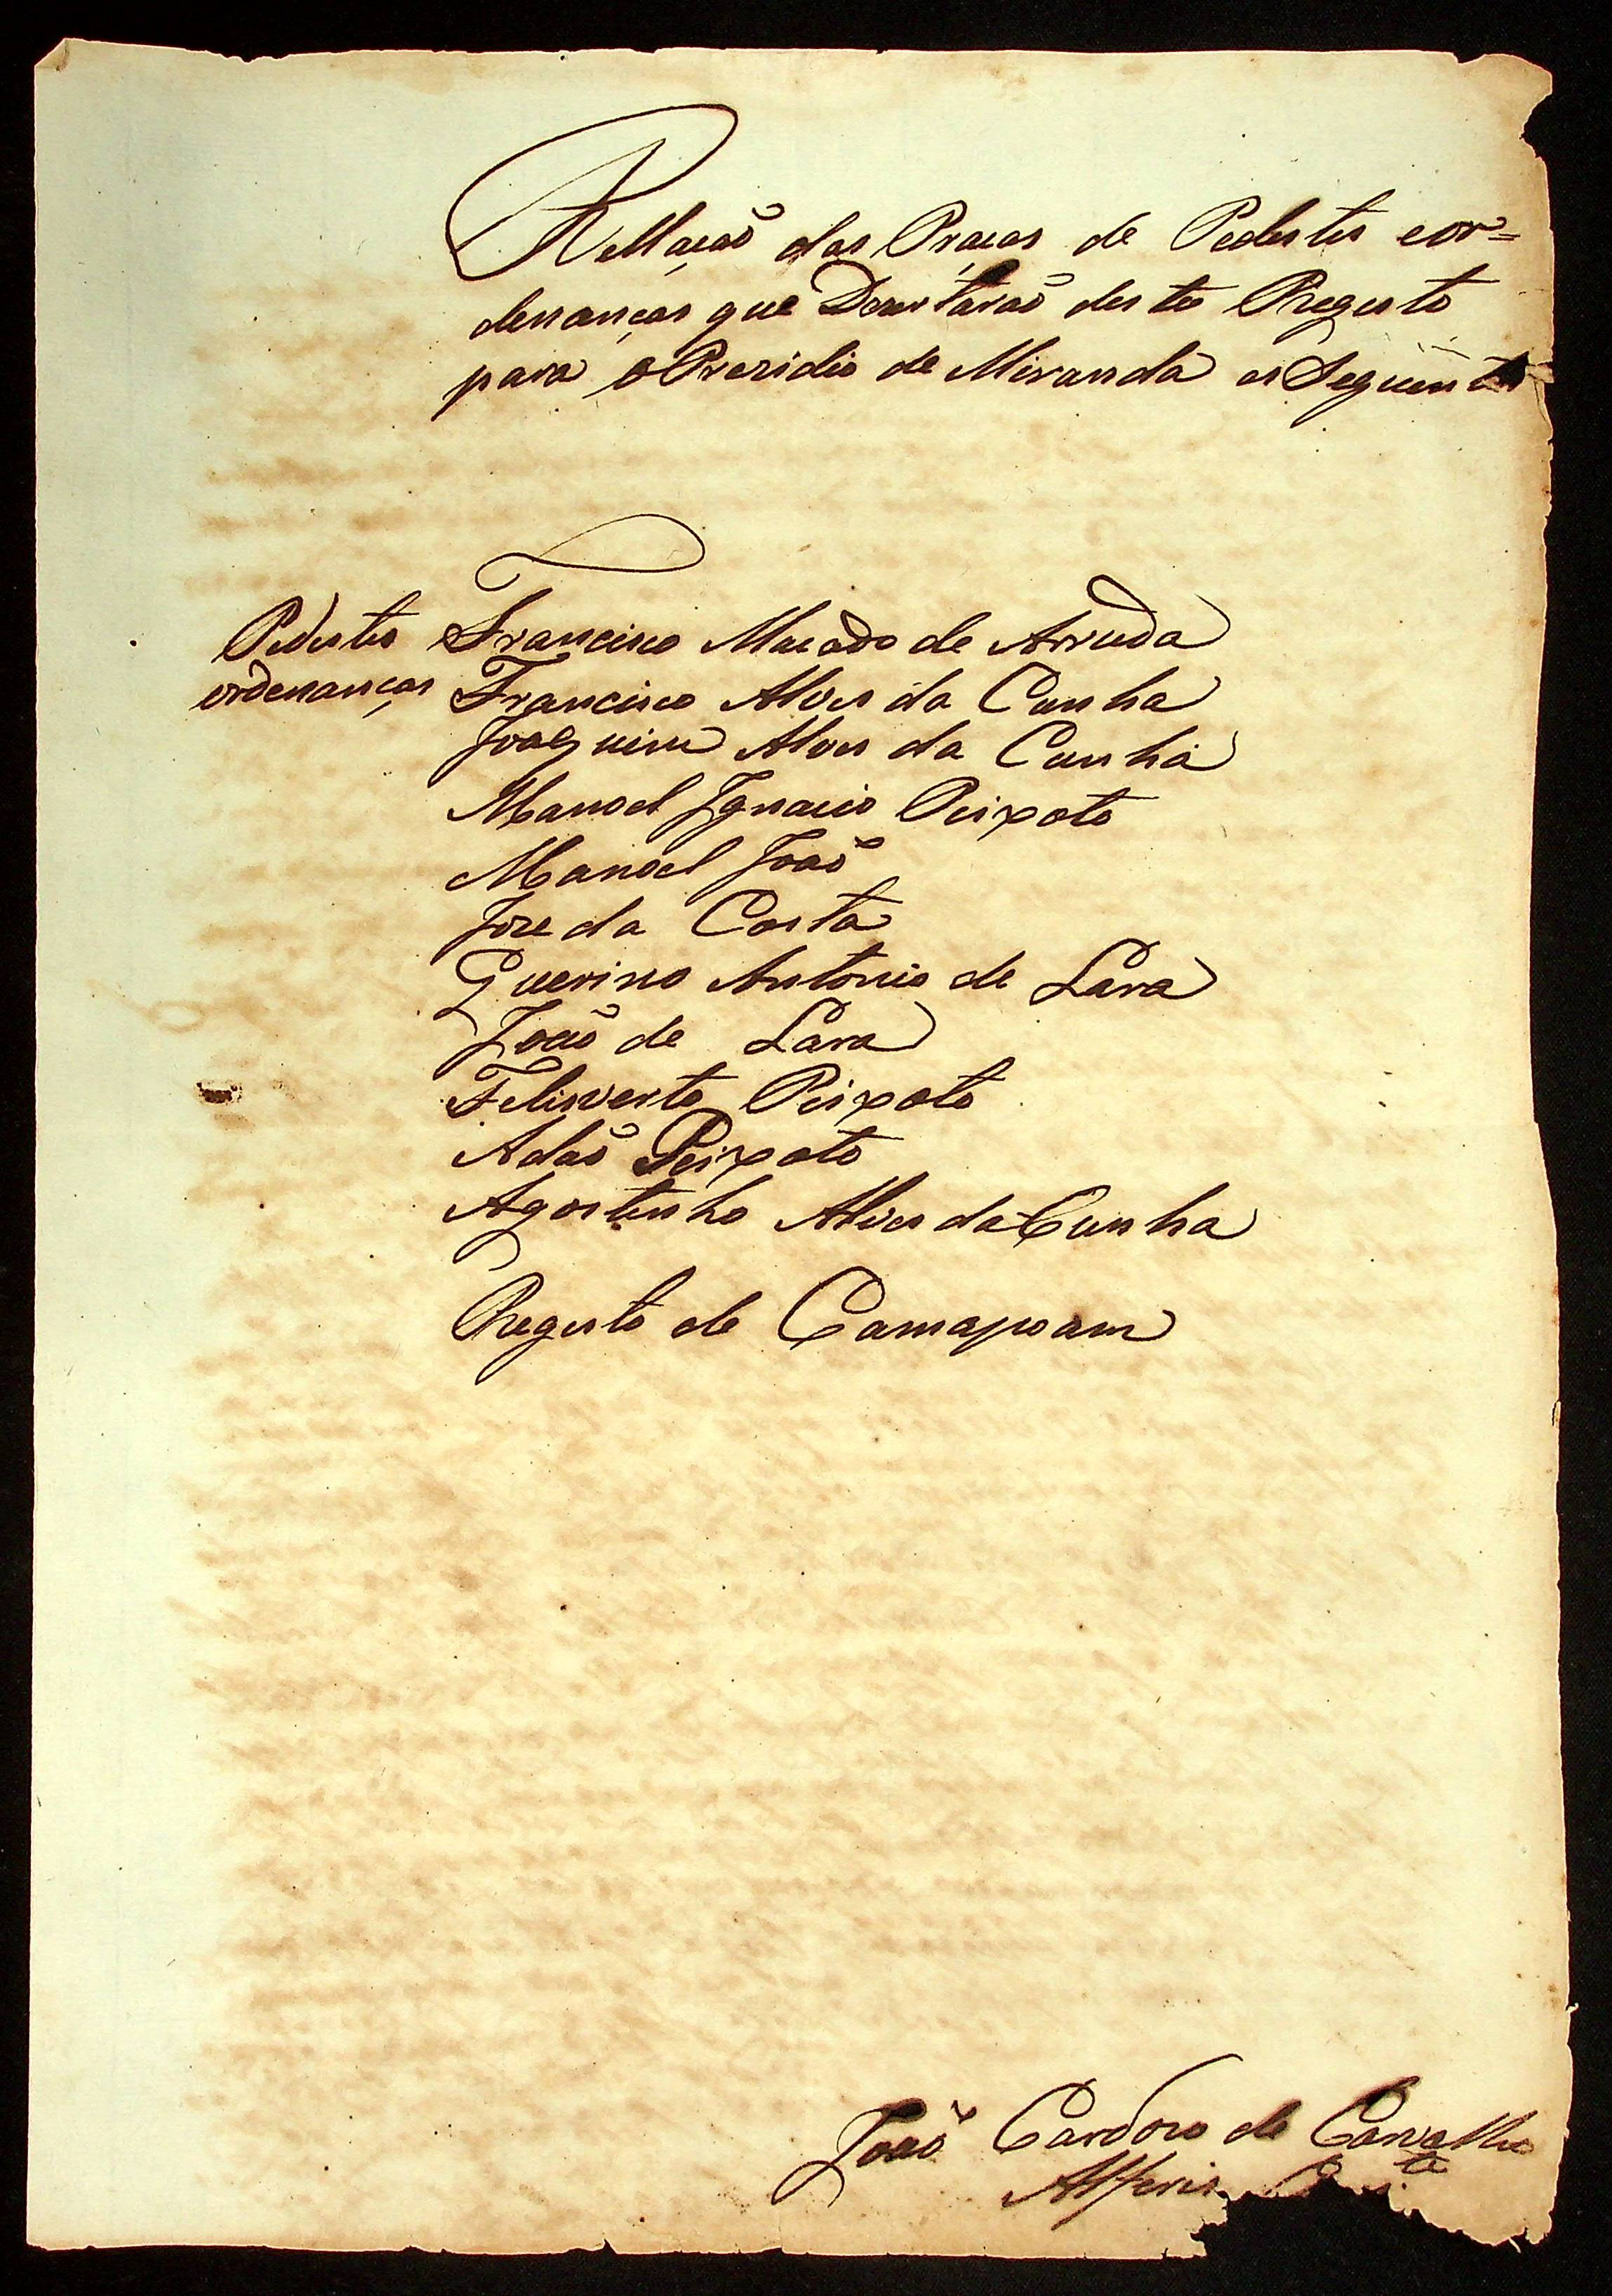 Rellaçaõ das Praças de Pedestes eor=
denanças que Dezertaraõ deste Registo
para o Prezidio de Miranda os Seguintes
Pedestes Francisco Macado de Arruda
ordenanças Francisco Alves da Cunha
Joaquim Alves da Cunha
Manoel Ignacio Peixoto
Manoel Joaõ
Joze da Costa
Guerino Antonio de Lara
Joaõ de Lara
Felisverto Peixoto
Adaõ Peixoto
Agostinho Alves da Cunha
Registo de Camapoam
Joaõ Cardozo de Carvalho
Alferis